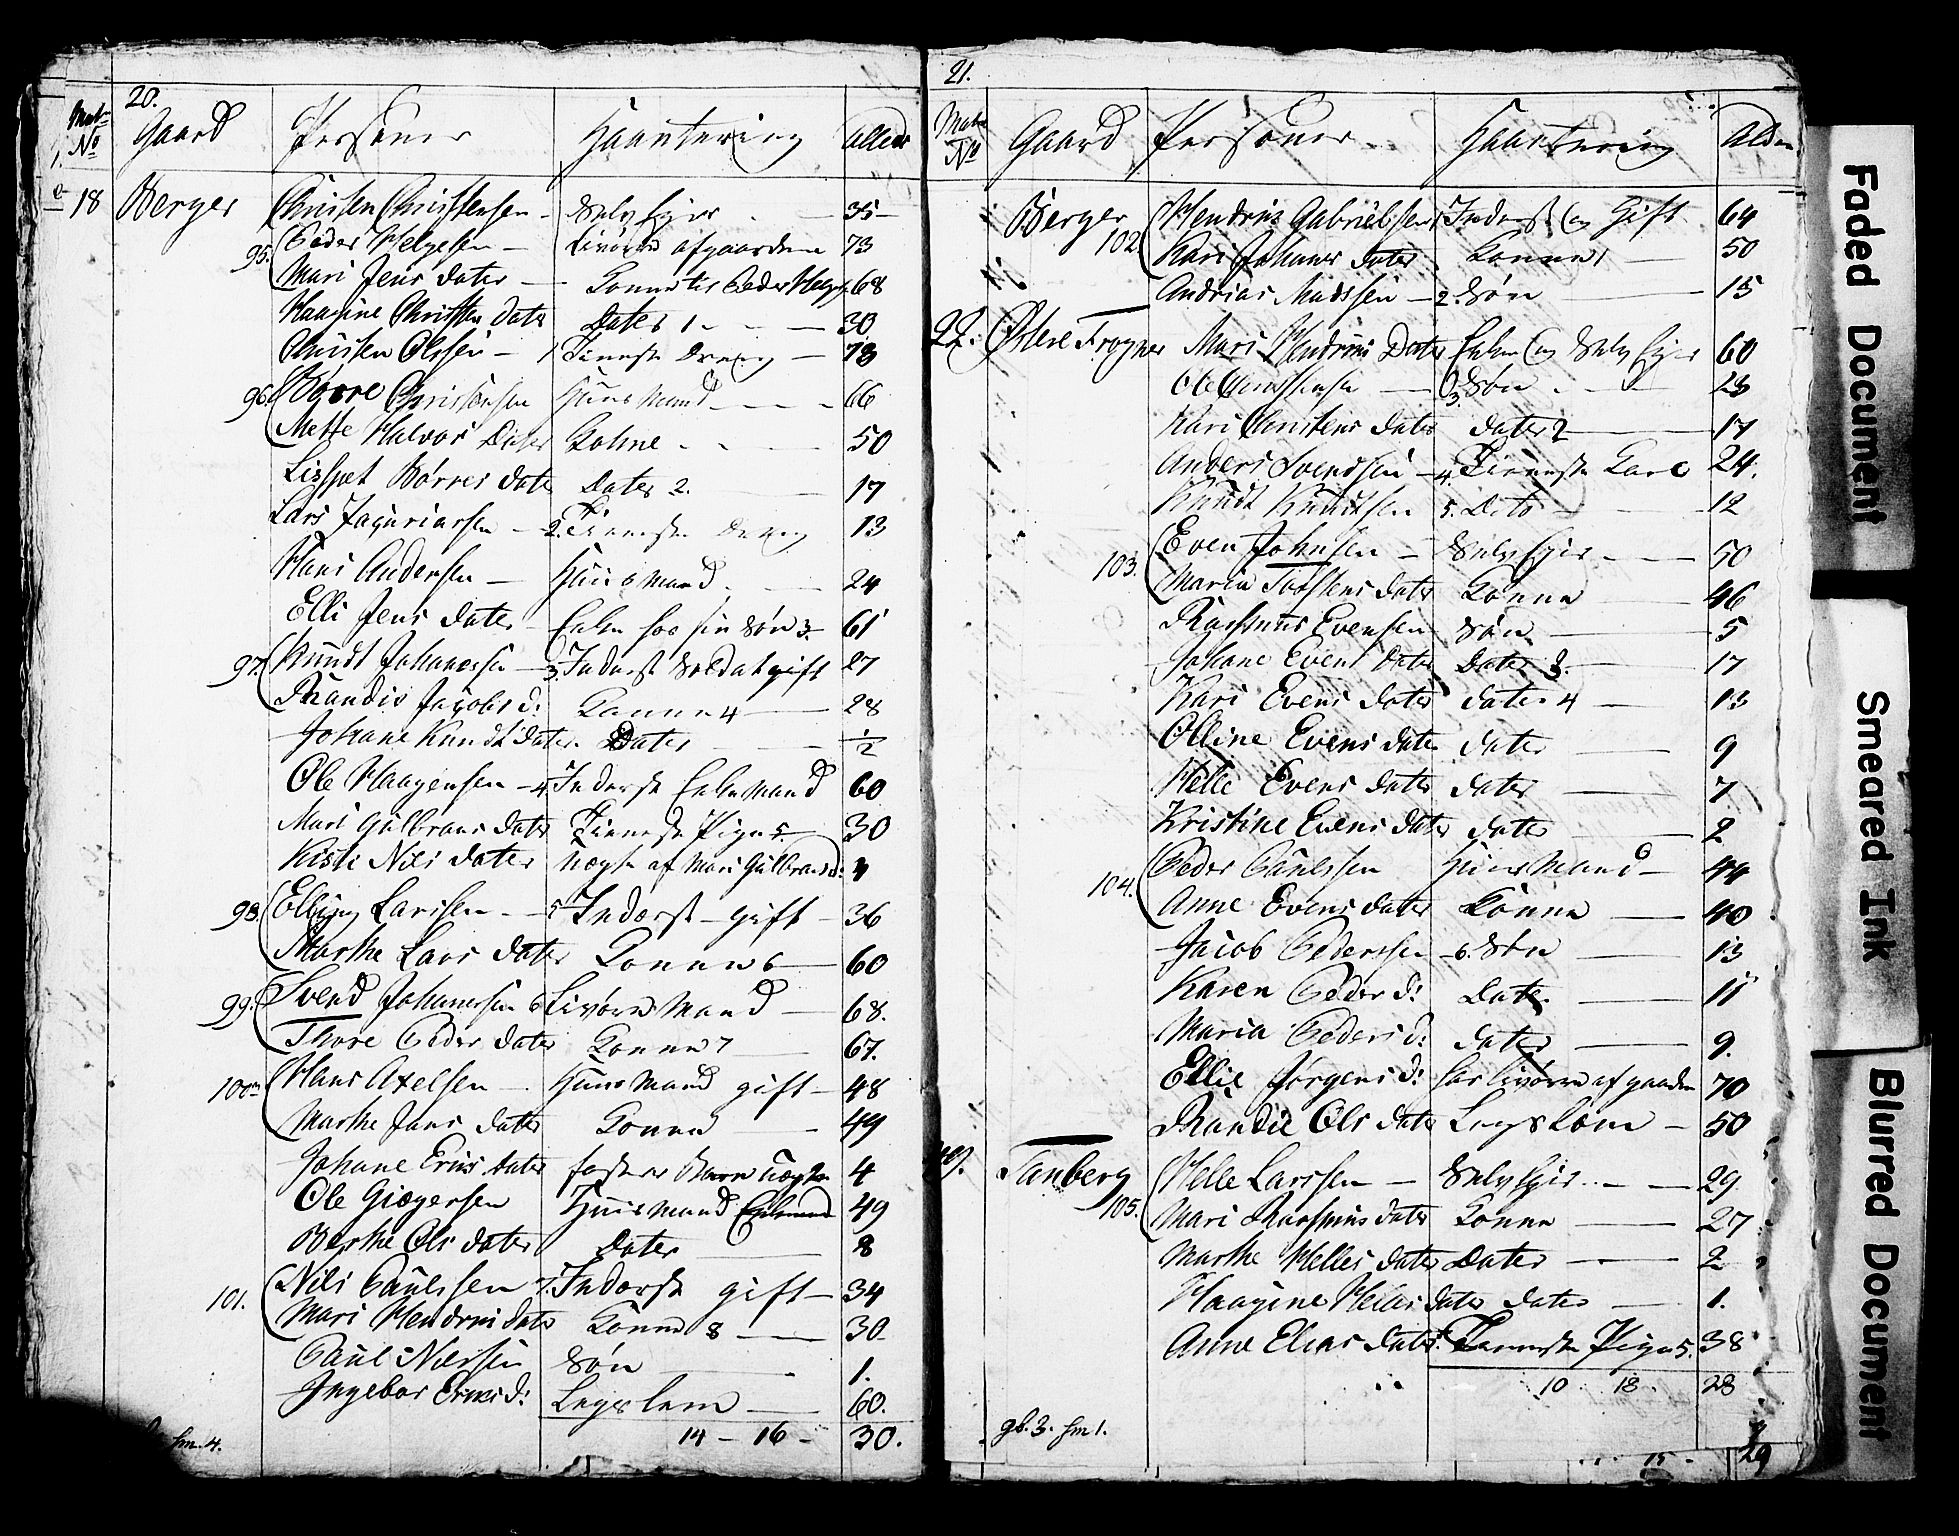 20.
Matr. No Gaard Personer Haantering Alder
18 Berger Christen Christensen - Selv Ejer - 35
95. Peder Helgesen - Livøre af gaarden 73
Mari Jens dater - Konne til Peder Helges 68
Haagine Christens dater Dater 1 - 30
Christen Olssen - 1 Tieneste Dreng - 13
96. Børre Christensen Huus Mand - 66
Mette Halvors Dater Kohne - 50
Lisspet Børres dater Dater 2. 17
Lars Zaguriasen - 2. Tieneste Dreng 13
Hans Andersen - Huus Mand 24
Elli Jens dater - Enke hos sin Søn 3 - 61
97. Knudt Johannessen - 3. Inderst Soldat gift 27
Randis Jacobs d: Konne 4 28
Johane Knudts dater Dater - 1/2
Ole Haagensen - 4 Inderst Enke Mand 60
Mari Gulbrans dater Tieneste Pige 5. 30
Kisti Nils dater uægte af Mari Gulbrans d: 4
98. Elling Larssen - 5 Inderst - gift - 36
Marthe Lars dater Konne 6 60
99. Svend Johannessen 6 Livøre Mand - 68.
Thore Peders dater Konne 7 - 67.
100. Hans Axelsen Huus Mand gift - 48
Marthe Jans dater Konne - 49
Johane Erics dater foster Barn uægte 4
Ole Giøgersen Huus Mand Enkemand 49
Berthe Ols dater Dater 8
101. Nils Paulssen 7. Inderst gift - 34
Mari Hendrics dater Konne 8 - 30.
Paul Nilssen Søn 1.
Ingebor Erics d: Legs lem - 60.
14 - 16 - 30.
hm. 4.
21.
Matr. No Gaard Personer Haantering Alder
Berger 102. Hendric Gabrielsen 1 Inderst og Gift 64
Kari Johanes dater Konne 1 - 50
Andrias Madssen - 2. Søn 15
22. Østere Frogner Mari Hendrics Dater Enke og Selv Ejer 60
Ole Christensen 3. Søn 23
Kari Christens dater dater 2 17
Anders Svendsen - 4. Tieneste Karl 24.
Knudt Knudtsen 5. Dito 12
103. Even Johnsen - Selv Ejer - 50
Maria Torstens dater Konne 46
Rassmus Evensen Søn - 5
Johane Evens dater Dater 3. 17
Kari Evens dater dater 4 - 13
Olline Evens dater dater 9
Helle Evens dater dater 7
Kristine Evens dater dater 2
104. Peder Paulssen Huus Mand - 44
Anne Evens dater Konne 40
Jacob Pederssen - 6. Søn 13
Karen Peders d: Dater 11
Maria Peders d: dater 9.
Ellie Jørgens d: har livøre af gaarden 70
Randie Ols dater Legs Lem - 50
Tanberg 105. Helle Larssen - Selv Ejer - 29
Mari Rassmus dater Konne 27
Marthe Helles dater Dater 2
Haagine Helles dater dater 1.
Anne Elias dater Tieneste Pige 5. 38
10 18. 28
gb. 3. hm 1.
15 - 29
Faded Document
Smeared Ink
Blurred Document